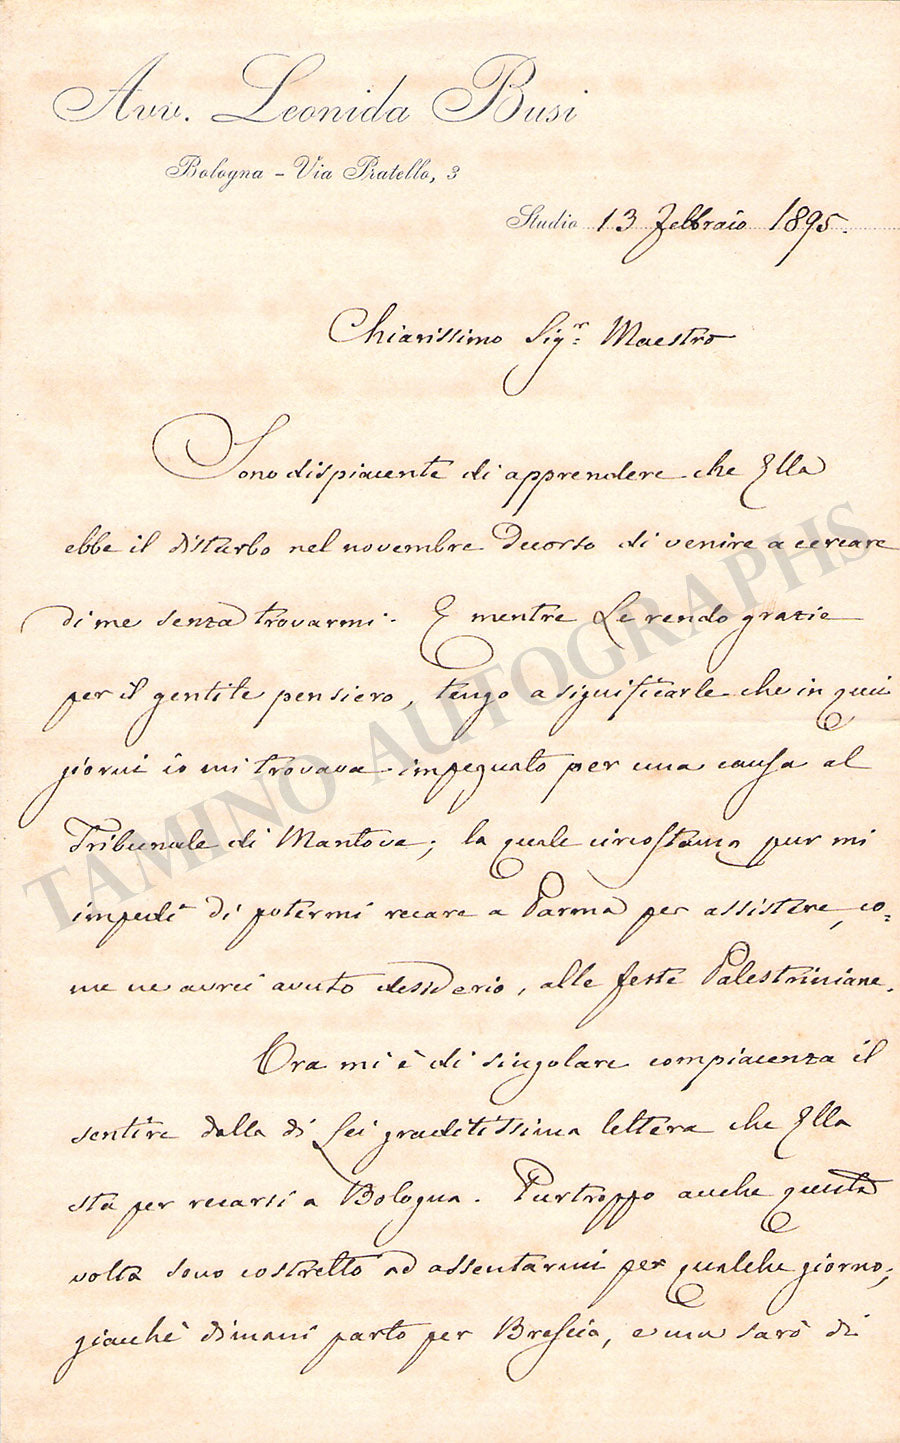 Avv. Leonida Busi
Bologna - Via Pratello, 3
Studio 13 Febbraio 1895.
Chiarissimo Sigr. Maestro
Sono dispiacente di apprendere che Ella
ebbe il disturbo nel novembre decorso di venire a cercare
di me senza trovarmi. E mentre Le rendo grazie
per il gentile pensiero, tengo a significarle che in quei
giorni io mi trovava impegnato per una causa al
Tribunale di Mantova; la quale circostanza pur mi
impedì di potermi recare a Parma per assistere, co=
me ne avrei avuto desiderio, alle feste Palestriniane.
Ora mi è di singolare compiacenza il
sentire dalla di Lei graditissima lettera che Ella
sta per recarsi a Bologna. Purtroppo anche questa
volta sono costretto ad assentarmi per qualche giorno;
giacchè dimani parto per Brescia, e ma sarò di
TAMINO AUTOGRAPHS